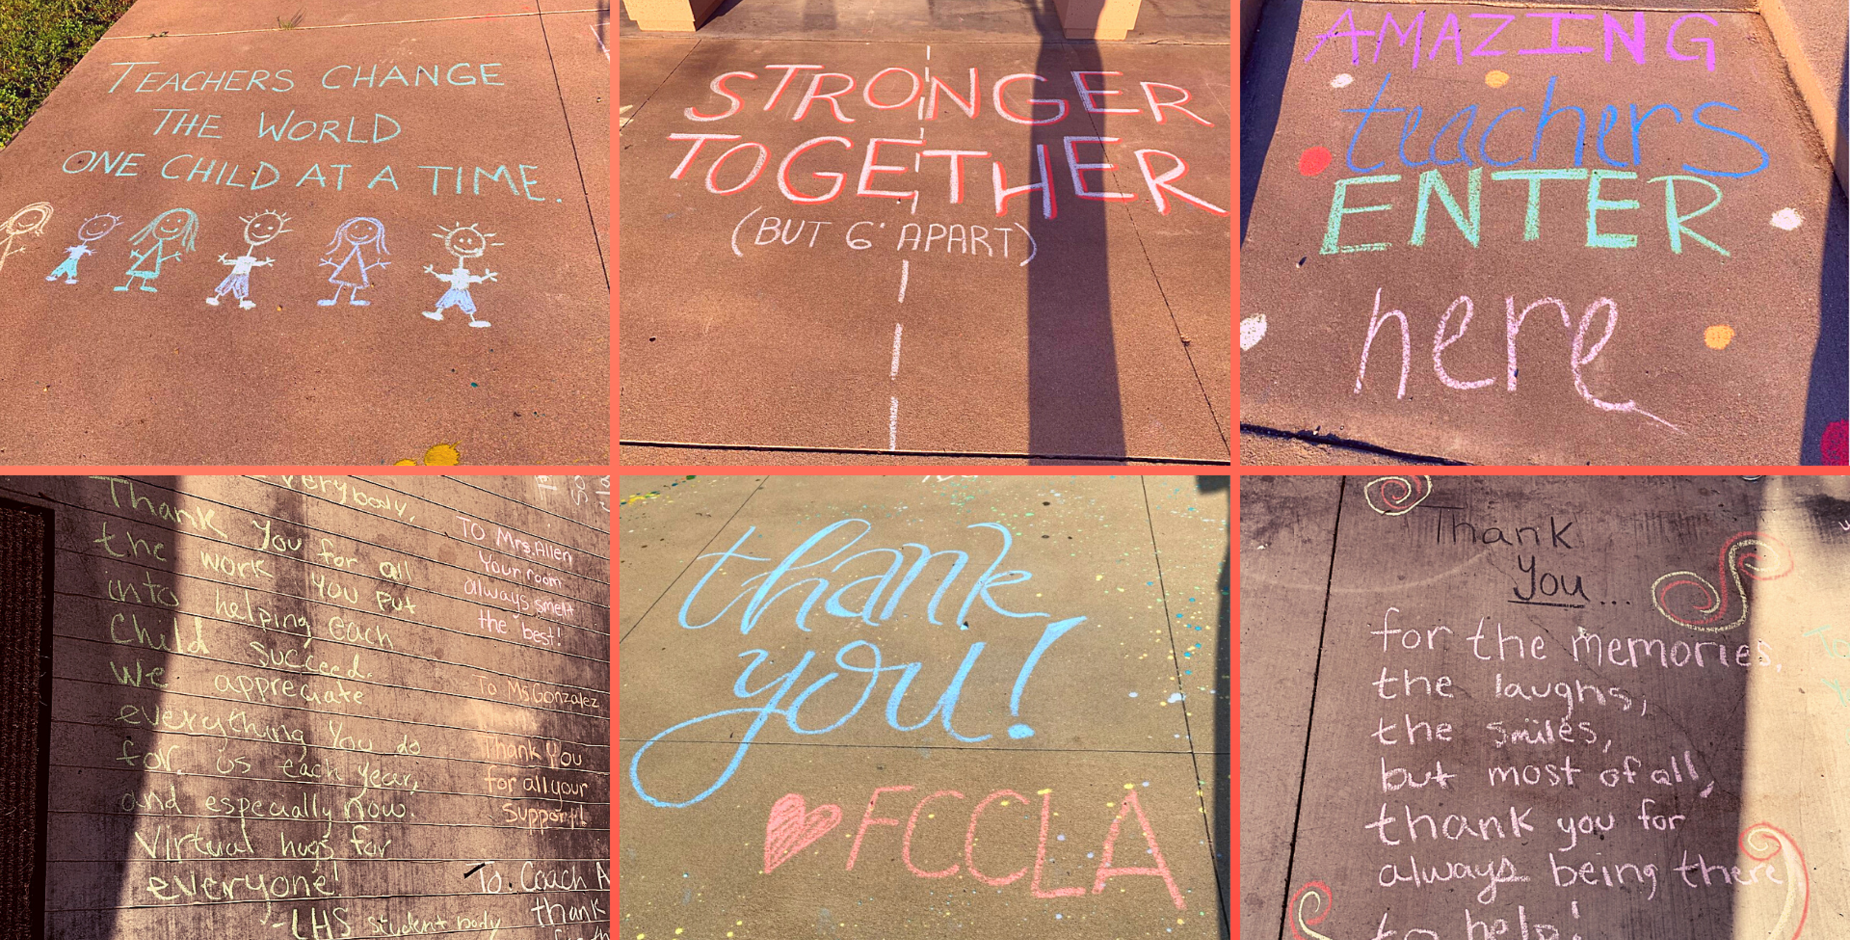 TEACHERS CHANGE
THE WORLD
ONE CHILD AT A TIME.
STRONGER
TOGETHER
(BUT 6' APART)
AMAZING
teachers
ENTER
here
Thank You for all
the work you put
into helping each
Child succeed.
We appreciate
everything You do
for us each year,
and especially now.
Virtual hugs for
everyone!
-LHS student body
To Mrs. Allen
Your room
always smelt
the best!
To Ms Gonzalez
Thank You
for all your
Support!
To Coach A
thank
thank
you!
FCCLA
Thank
you...
for the memories,
the laughs,
the smiles,
but most of all,
thank you for
always being there
to help!